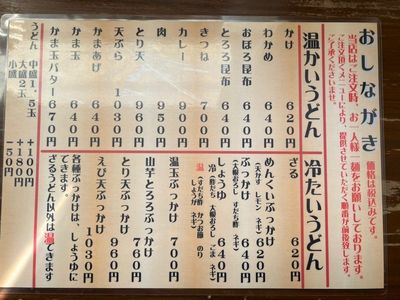 おしながき
価格は税込みです。
当店はご注文時、お一人様一麺をお願いしております。
ご注文頂くメニューにより、提供させていただく順番が前後致します。
ご了承くださいませ。
温かいうどん
かけ 620円
わかめ 640円
おぼろ昆布 640円
とろろ昆布 640円
きつね 700円
カレー 900円
肉 950円
とり天 960円
天ぷら 1030円
かまあげ 640円
かま玉 640円
かま玉バター 670円
うどん 中盛1.5玉 +110円
大盛2玉 +180円
小盛 −50円
冷たいうどん
ざる 620円
めんくいぶっかけ 620円
(天かす レモン ネギ)
ぶっかけ 640円
(大根おろし すだち酢 ネギ)
しょうゆ 640円
冷(酢だち 大根おろし ごま ネギ)
温(すだち酢 かつお節 のり しょうが ネギ)
温玉ぶっかけ 700円
山芋とろろぶっかけ 760円
とり天ぶっかけ 960円
えび天ぶっかけ 1030円
各種ぶっかけは、しょうゆにできます。
ざるうどん以外は温できます